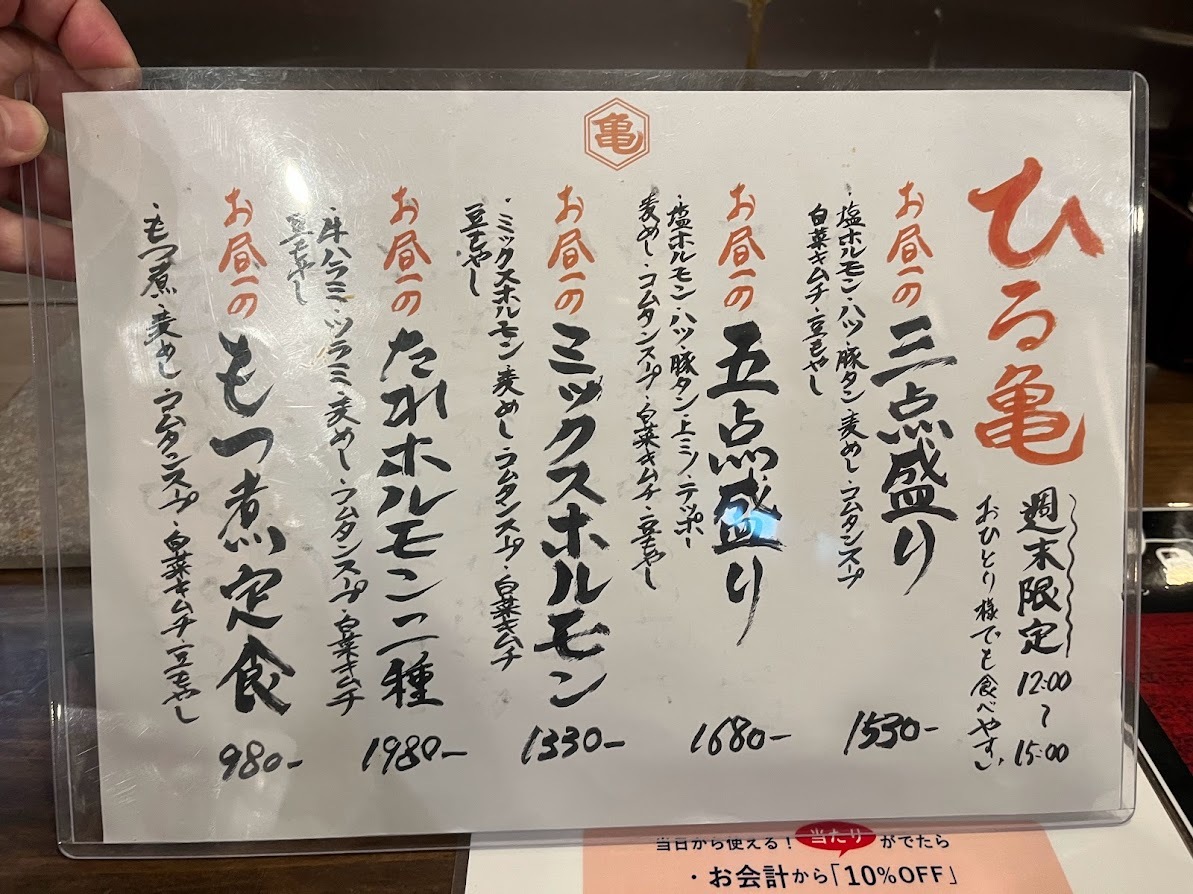 亀
ひる亀
週末限定 12:00～15:00
おひとり様でも食べやすい
お昼の三点盛り 1530-
・塩ホルモン・ハツ・豚タン・麦めし・コムタンスープ
白菜キムチ・豆もやし
お昼の五点盛り 1680-
・塩ホルモン・ハツ・豚タン・上ミノ・テッポー
麦めし・コムタンスープ・白菜キムチ・豆もやし
お昼のミックスホルモン 1330-
・ミックスホルモン・麦めし・コムタンスープ・白菜キムチ
豆もやし
お昼のたれホルモン二種 1980-
・牛ハラミ・ツラミ・麦めし・コムタンスープ・白菜キムチ
豆もやし
お昼のもつ煮定食 980-
・もつ煮・麦めし・コムタンスープ・白菜キムチ・豆もやし
当日から使える！当たりがでたら
・お会計から「10%OFF」